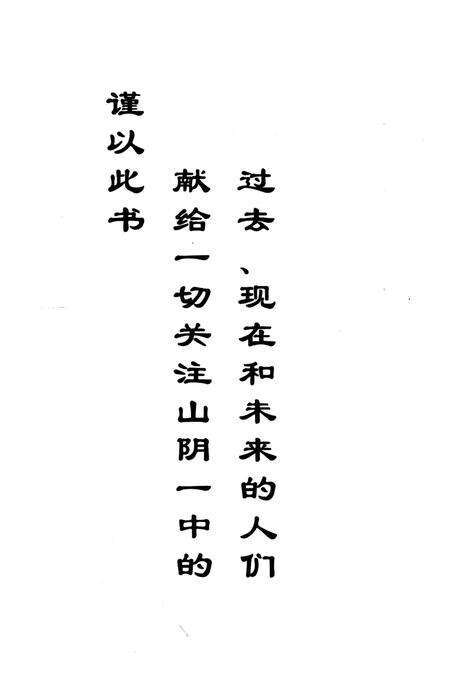 谨以此书
献给一切关注山阴一中的
过去、现在和未来的人们